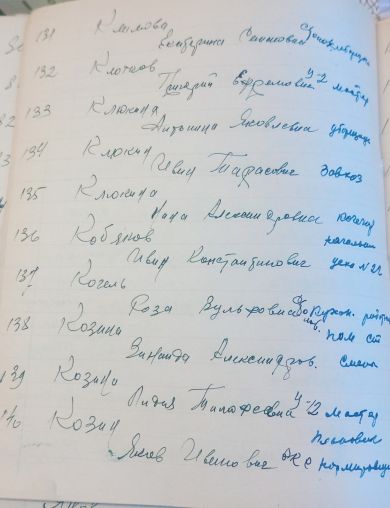 131 Климова
Екатерина Семеновна
132 Клочков
Григорий Ефремович ц-2 мастер
133 Клюкина
Антонина Яковлевна уборщица
134 Клюкин
Иван Тарасович завхоз
135 Клюкина
Нина Александровна кочегар
136 Кобяков начальн
Иван Константинович цеха №22
137 Когель
Роза Вульфовна
138 Козина пом ст
Зинаида Александров. смены
139 Козина
Лидия Тимофеевна ц-2 мастер
140 Козин
Яков Иванович нормировщик